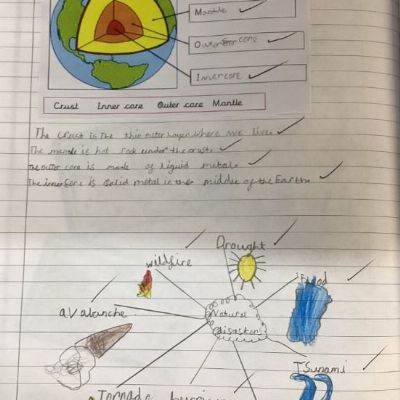 Mantle
Outer core
Inner core
Crust Inner core Outer core Mantle
The crust is the thin outer layer where we live.
The mantle is hot rock under the crust.
The outer core is made of liquid metal.
The inner core is solid metal in the middle of the Earth.
Drought
wildfire
Flood
avalanche
Natural
disasters
Tsunami
Tornado